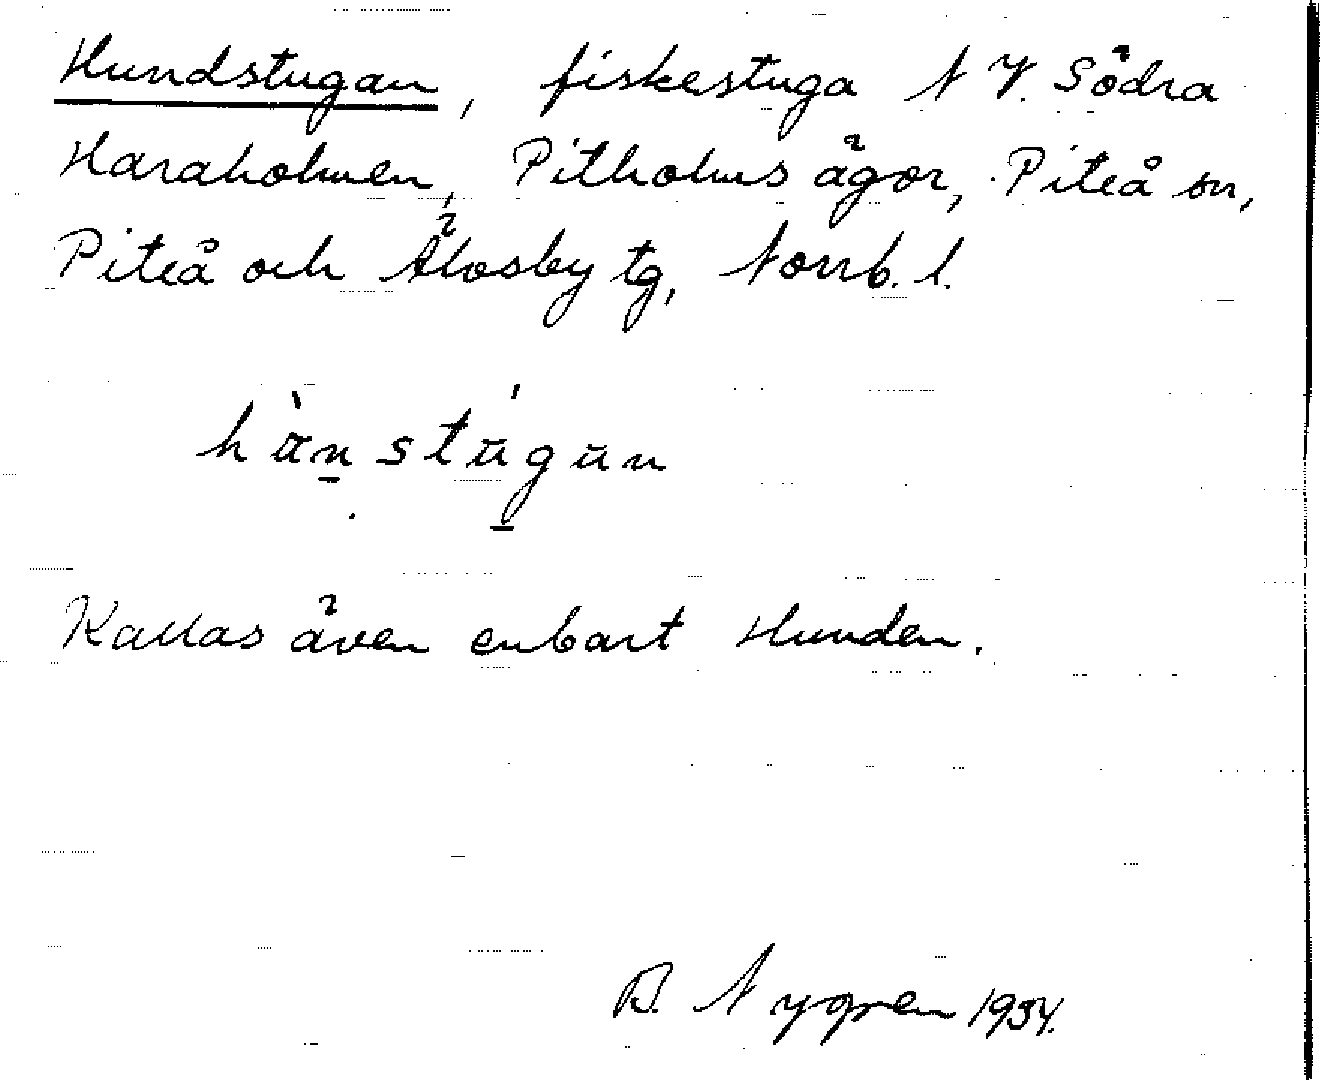 Hundstugan, fiskestuga N V. Södra
Haraholmen, Pitholms ägor, Piteå sn,
Piteå och Älvsby tg, Norrb. l.
Kallas även enbart Hunden.
B. Nygren 1954.